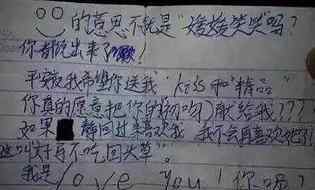 的意思不就是"嬉嬉笑哭"吗?
你都说出来了!
平安夜我希望你送我"kiss和"精品"
你真的愿意把你的初吻献给我???
如果 静回过来喜欢我 我不会再喜欢她了!
这叫好马不吃回头草。
我是love you! 你呢?